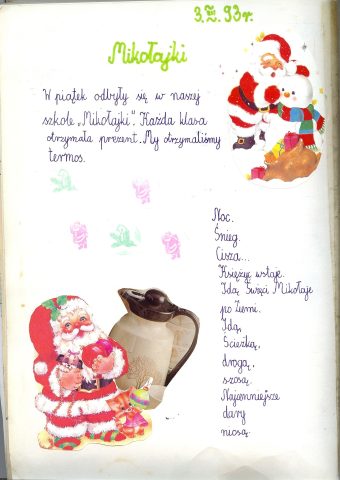 3.XII.93r.
Mikołajki
W piątek odbyły się w naszej
szkole „Mikołajki". Każda klasa
otrzymała prezent. My otrzymaliśmy
termos.
Noc.
Śnieg.
Cisza...
Księżyc wstaje.
Idą Święci Mikołaje
po Ziemi.
Idą,
Ścieżką,
drogą,
szosą.
Najcenniejsze
dary
niosą.